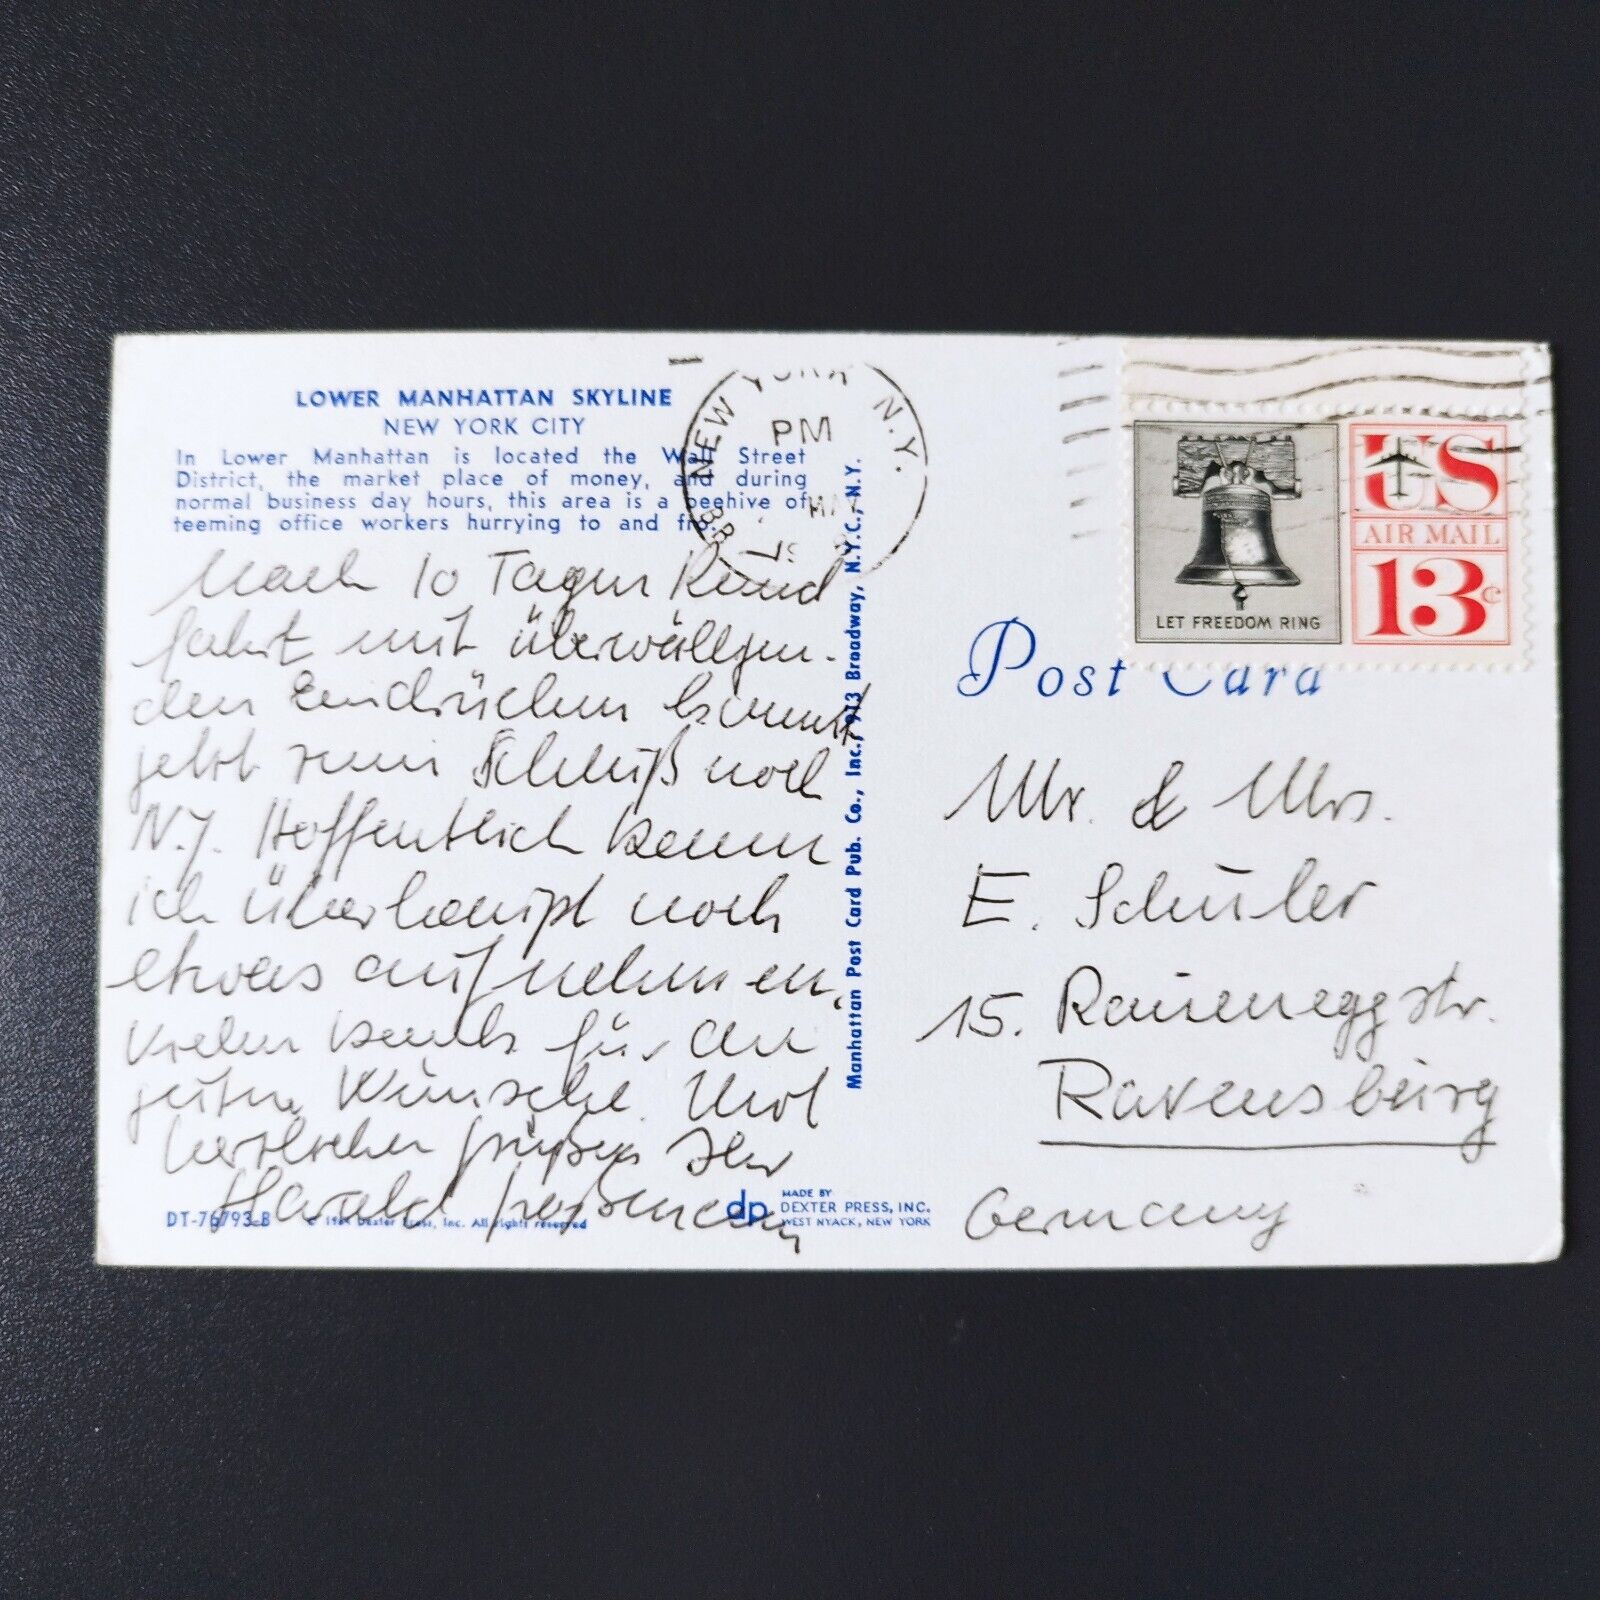 LOWER MANHATTAN SKYLINE
NEW YORK CITY
In Lower Manhattan is located the Wall Street
District, the market place of money, and during
normal business day hours, this area is a beehive of
teeming office workers hurrying to and fro.
Nach 10 Tagen Rund
fahrt mit überwältigen-
den Eindrücken kommt
jetzt zum Schluß noch
N.Y. Hoffentlich kann
ich überhaupt noch
etwas aufnehmen.
Vielen Dank für die
guten Wünsche. Und
herzlichen Grüßen Ihr
Harald
DT-76793-B
© 1964 Dexter Press, Inc. All rights reserved
dp
MADE BY
DEXTER PRESS, INC.
WEST NYACK, NEW YORK
Manhattan Post Card Pub. Co., Inc., 913 Broadway, N.Y.C., N.Y.
NEW YORK N.Y.
PM
LET FREEDOM RING
US
AIR MAIL
13c
Post Card
Mr. & Mrs.
E. Schuler
15. Raueneggstr.
Ravensburg
Germany